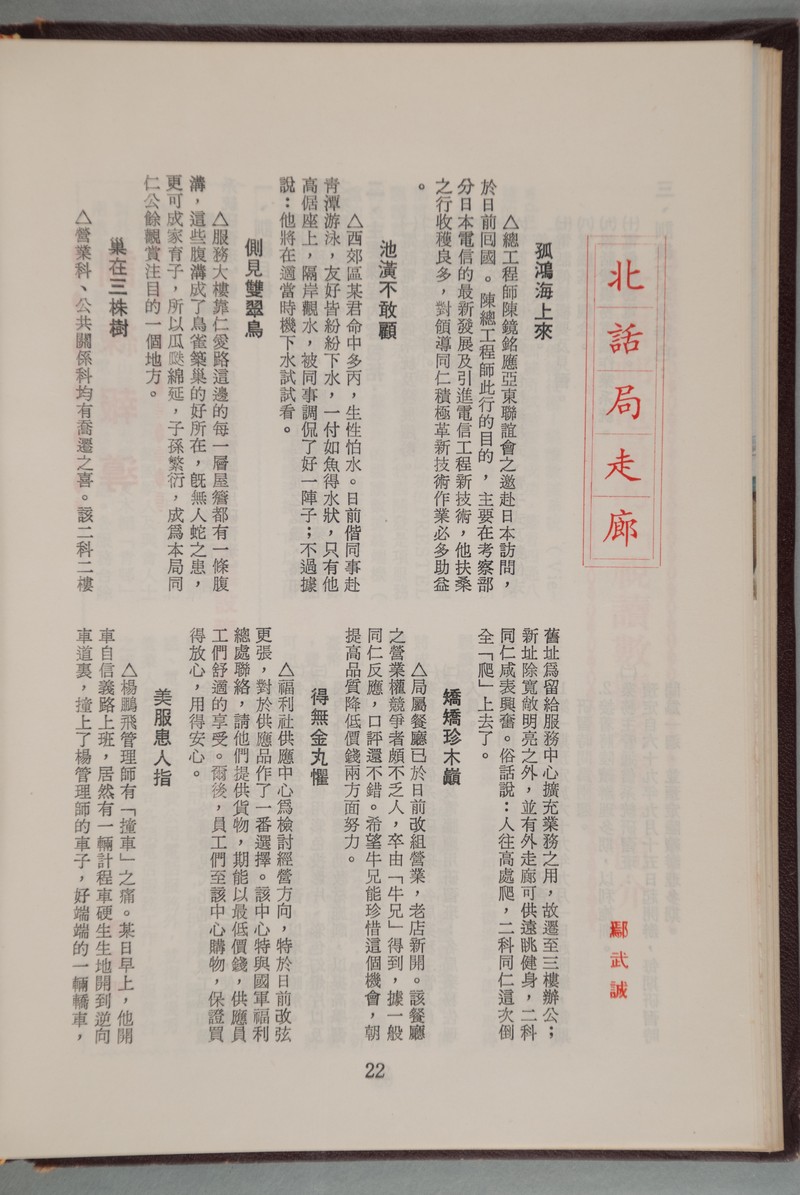 北話局走廊
鄢武誠
孤鴻海上來
△總工程師陳鏡銘應亞東聯誼會之邀赴日本訪問，
於日前囘國。陳總工程師此行的目的，主要在考察部
分日本電信的最新發展及引進電信工程新技術，他扶桑
之行收穫良多，對領導同仁積極革新技術作業必多助益
。
池潢不敢顧
△西郊區某君命中多丙，生性怕水。日前偕同事赴
靑潭游泳，友好皆紛紛下水，一付如魚得水狀，只有他
高倨座上，隔岸觀水，被同事調侃了好一陣子；不過據
說：他將在適當時機下水試試看。
側見雙翠鳥
△服務大樓靠仁愛路這邊的每一層屋簷都有一條腹
溝，這些腹溝成了鳥雀築巢的好所在，旣無人蛇之患，
更可成家育子，所以瓜瓞綿延，子孫繁衍，成爲本局同
仁公餘觀賞注目的一個地方。
巢在三株樹
△營業科、公共關係科均有喬遷之喜。該二科二樓
舊址爲留給服務中心擴充業務之用，故遷至三樓辦公；
新址除寬敞明亮之外，並有外走廊可供遠眺健身，二科
同仁咸表興奮。俗話說：人往高處爬，二科同仁這次倒
全「爬」上去了。
矯矯珍木巔
△局屬餐廳已於日前改組營業，老店新開。該餐廳
之營業權競爭者頗不乏人，卒由「牛兄」得到，據一般
同仁反應，口評還不錯。希望牛兄能珍惜這個機會，朝
提高品質降低價錢兩方面努力。
得無金丸懼
△福利社供應中心爲檢討經營方向，特於日前改弦
更張，對於供應品作了一番選擇。該中心特與國軍福利
總處聯絡，請他們提供貨物，期能以最低價錢，供應員
工們舒適的享受。爾後，員工們至該中心購物，保證買
得放心，用得安心。
美服患人指
△楊鵬飛管理師有「撞車」之痛。某日早上，他開
車自信義路上班，居然有一輛計程車硬生生地開到逆向
車道裏，撞上了楊管理師的車子，好端端的一輛轎車，
22